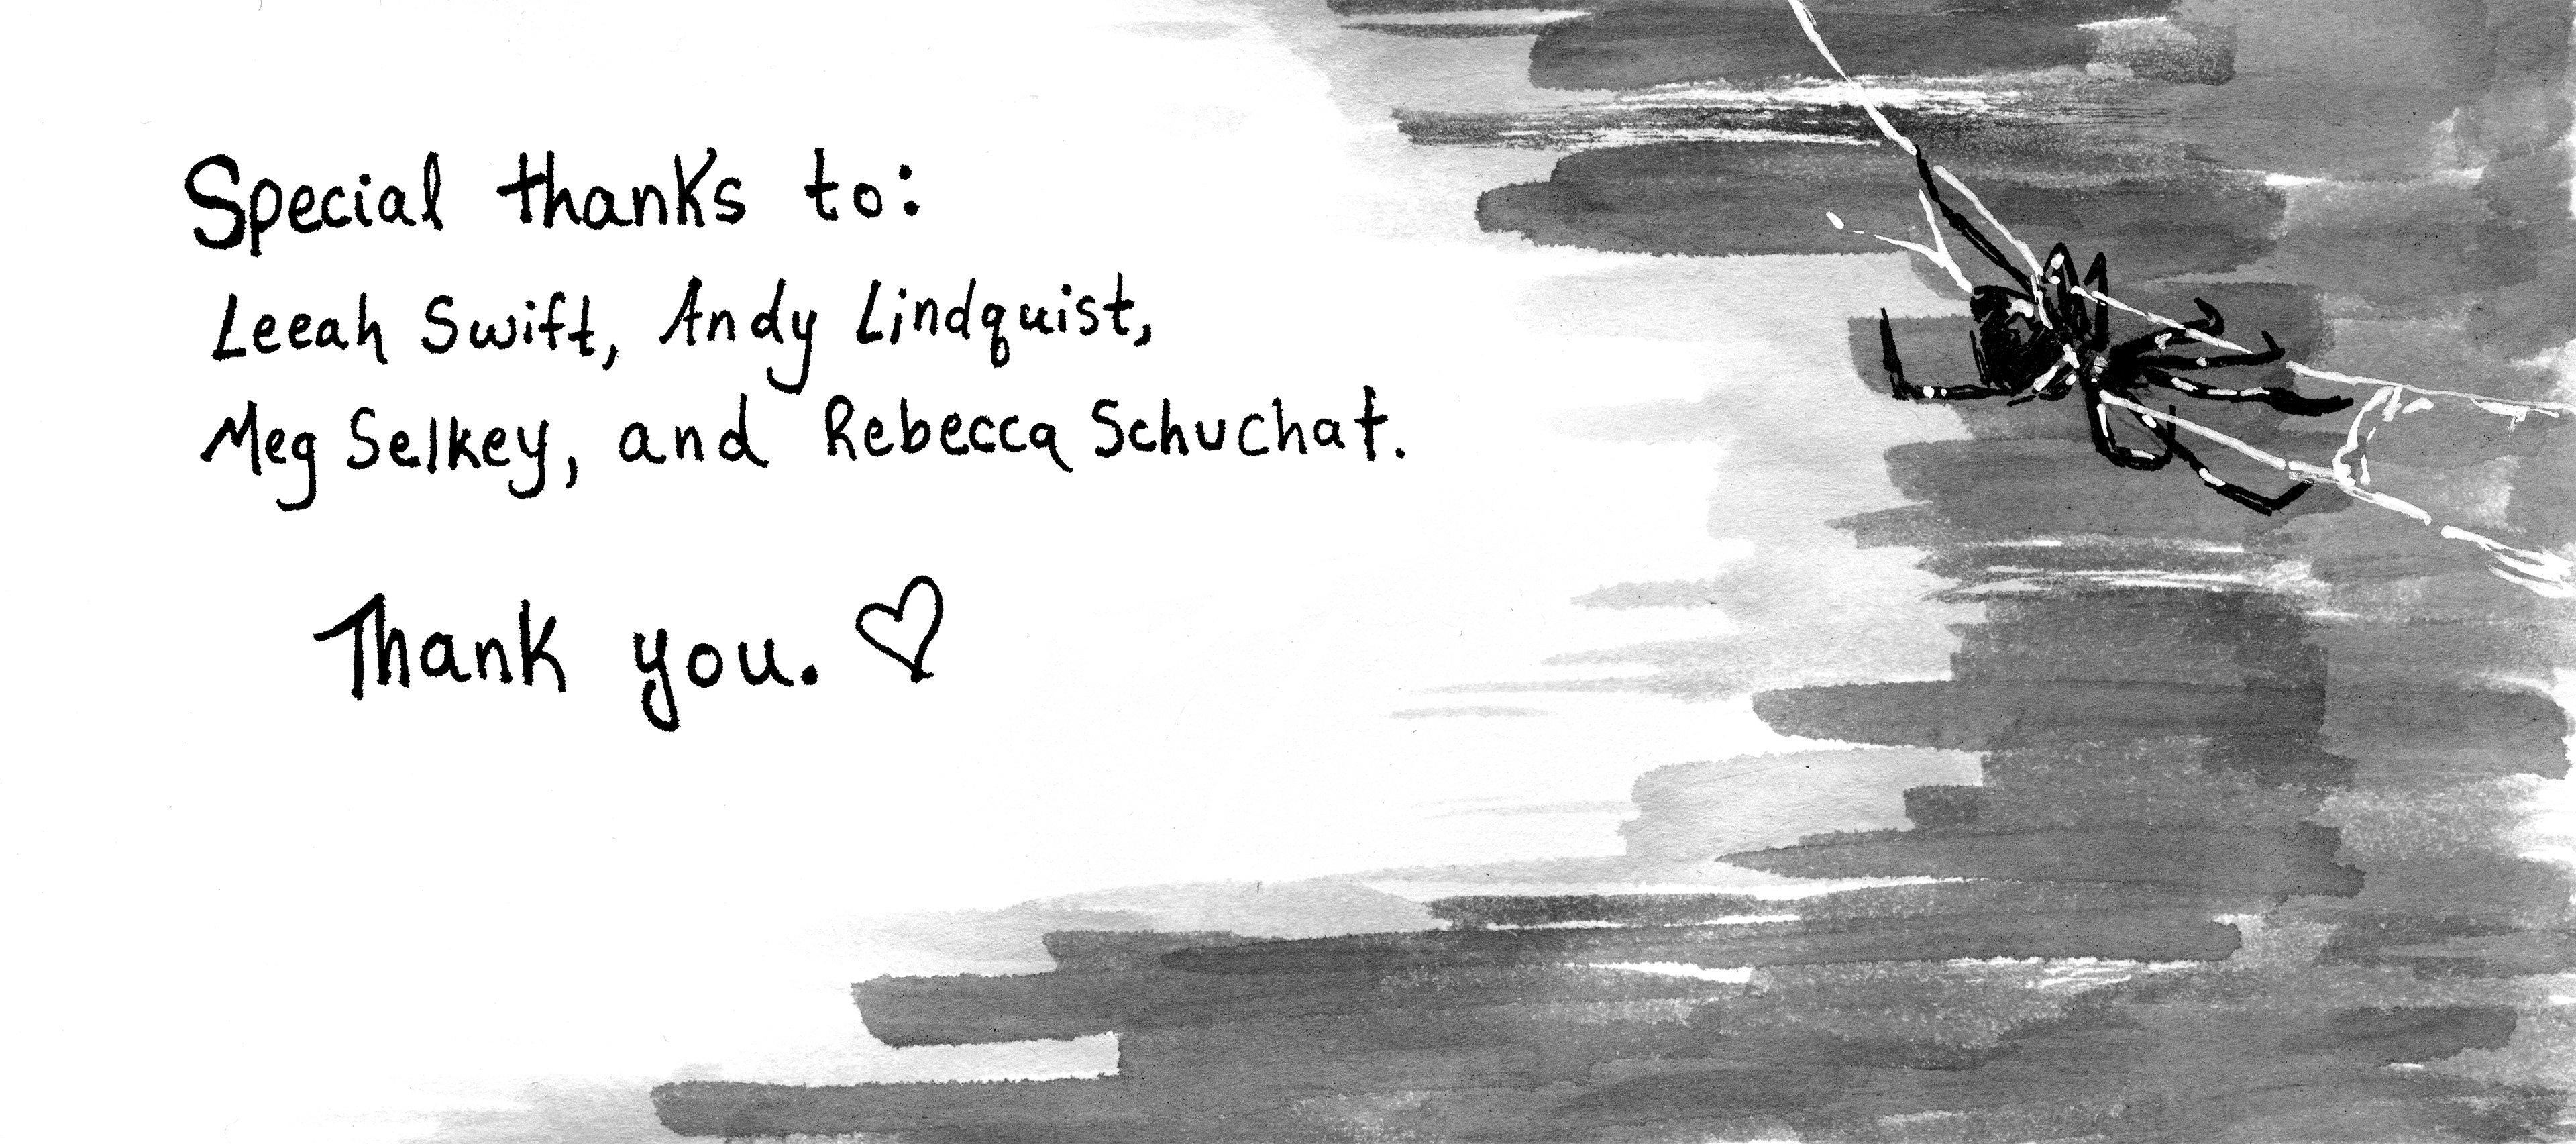 Special thanks to:
Leeah Swift, Andy Lindquist,
Meg Selkey, and Rebecca Schuchat.
Thank you. ♡